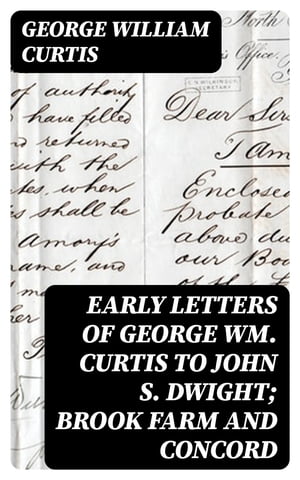 GEORGE WILLIAM
CURTIS
North
Office.
C. S. WILKINSON,
SECRETARY
of authority
have filled
returned
with the
when
is shall be
Amory's
name, and
her
Dear Sirs
I am
Enclosed
probate
above du
our Bo
of the
EARLY LETTERS
OF GEORGE WM.
CURTIS TO JOHN
S. DWIGHT;
BROOK FARM AND
CONCORD